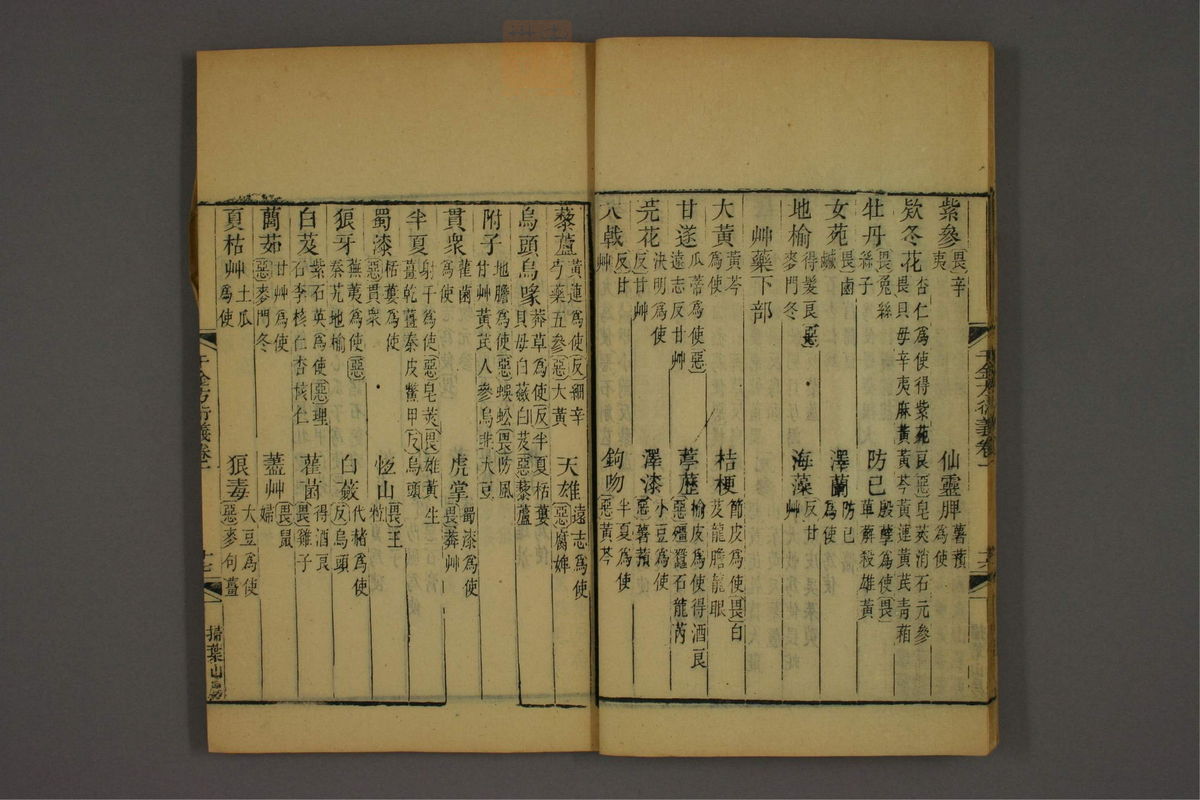 紫參 畏辛夷 仙靈脾 薯蕷為使
欵冬花 杏仁為使得紫菀良惡皂莢消石元參畏貝母辛夷麻黃黃芩黃連黃芪青葙
牡丹 畏兔絲子 防已 殷孽為使畏萆薢殺雄黃
女苑 畏鹵鹹 澤蘭 防己為使
地榆 得髮良惡麥門冬 海藻 反甘艸
艸藥下部
大黃 黃芩為使 桔梗 節皮為使畏白芨龍膽龍眼
甘遂 瓜蒂為使惡遠志反甘艸 葶藶 榆皮為使得酒良惡殭蠶石龍芮
芫花 決明為使反甘艸 澤漆 小豆為使惡薯蕷
大戟 反甘艸 鉤吻 半夏為使惡黃芩
藜蘆 黃連為使反細辛芍藥五參惡大黃 天雄 遠志為使惡腐婢
烏頭烏喙 莽草為使反半夏栝蔞貝母白蘞白芨惡藜蘆
附子 地膽為使惡蜈蚣畏防風甘艸黃芪人參烏韭大豆
貫衆 雚菌為使 虎掌 蜀漆為使畏莽艸
半夏 射干為使惡皂莢畏雄黃生薑乾薑秦皮鱉甲反烏頭
蜀漆 栝蔞為使惡貫衆 恆山 畏玉札
狼牙 蕪荑為使惡秦艽地榆 白蘞 代赭為使反烏頭
白芨 紫石英為使惡理石李核仁杏核仁 雚菌 得酒良畏雞子
藺茹 甘艸為使惡麥門冬 藎艸 畏鼠婦
夏枯艸 土瓜為使 狼毒 大豆為使惡麥句薑
千金方衍義卷一
十七
掃葉山房
千金方衍義卷一
十六